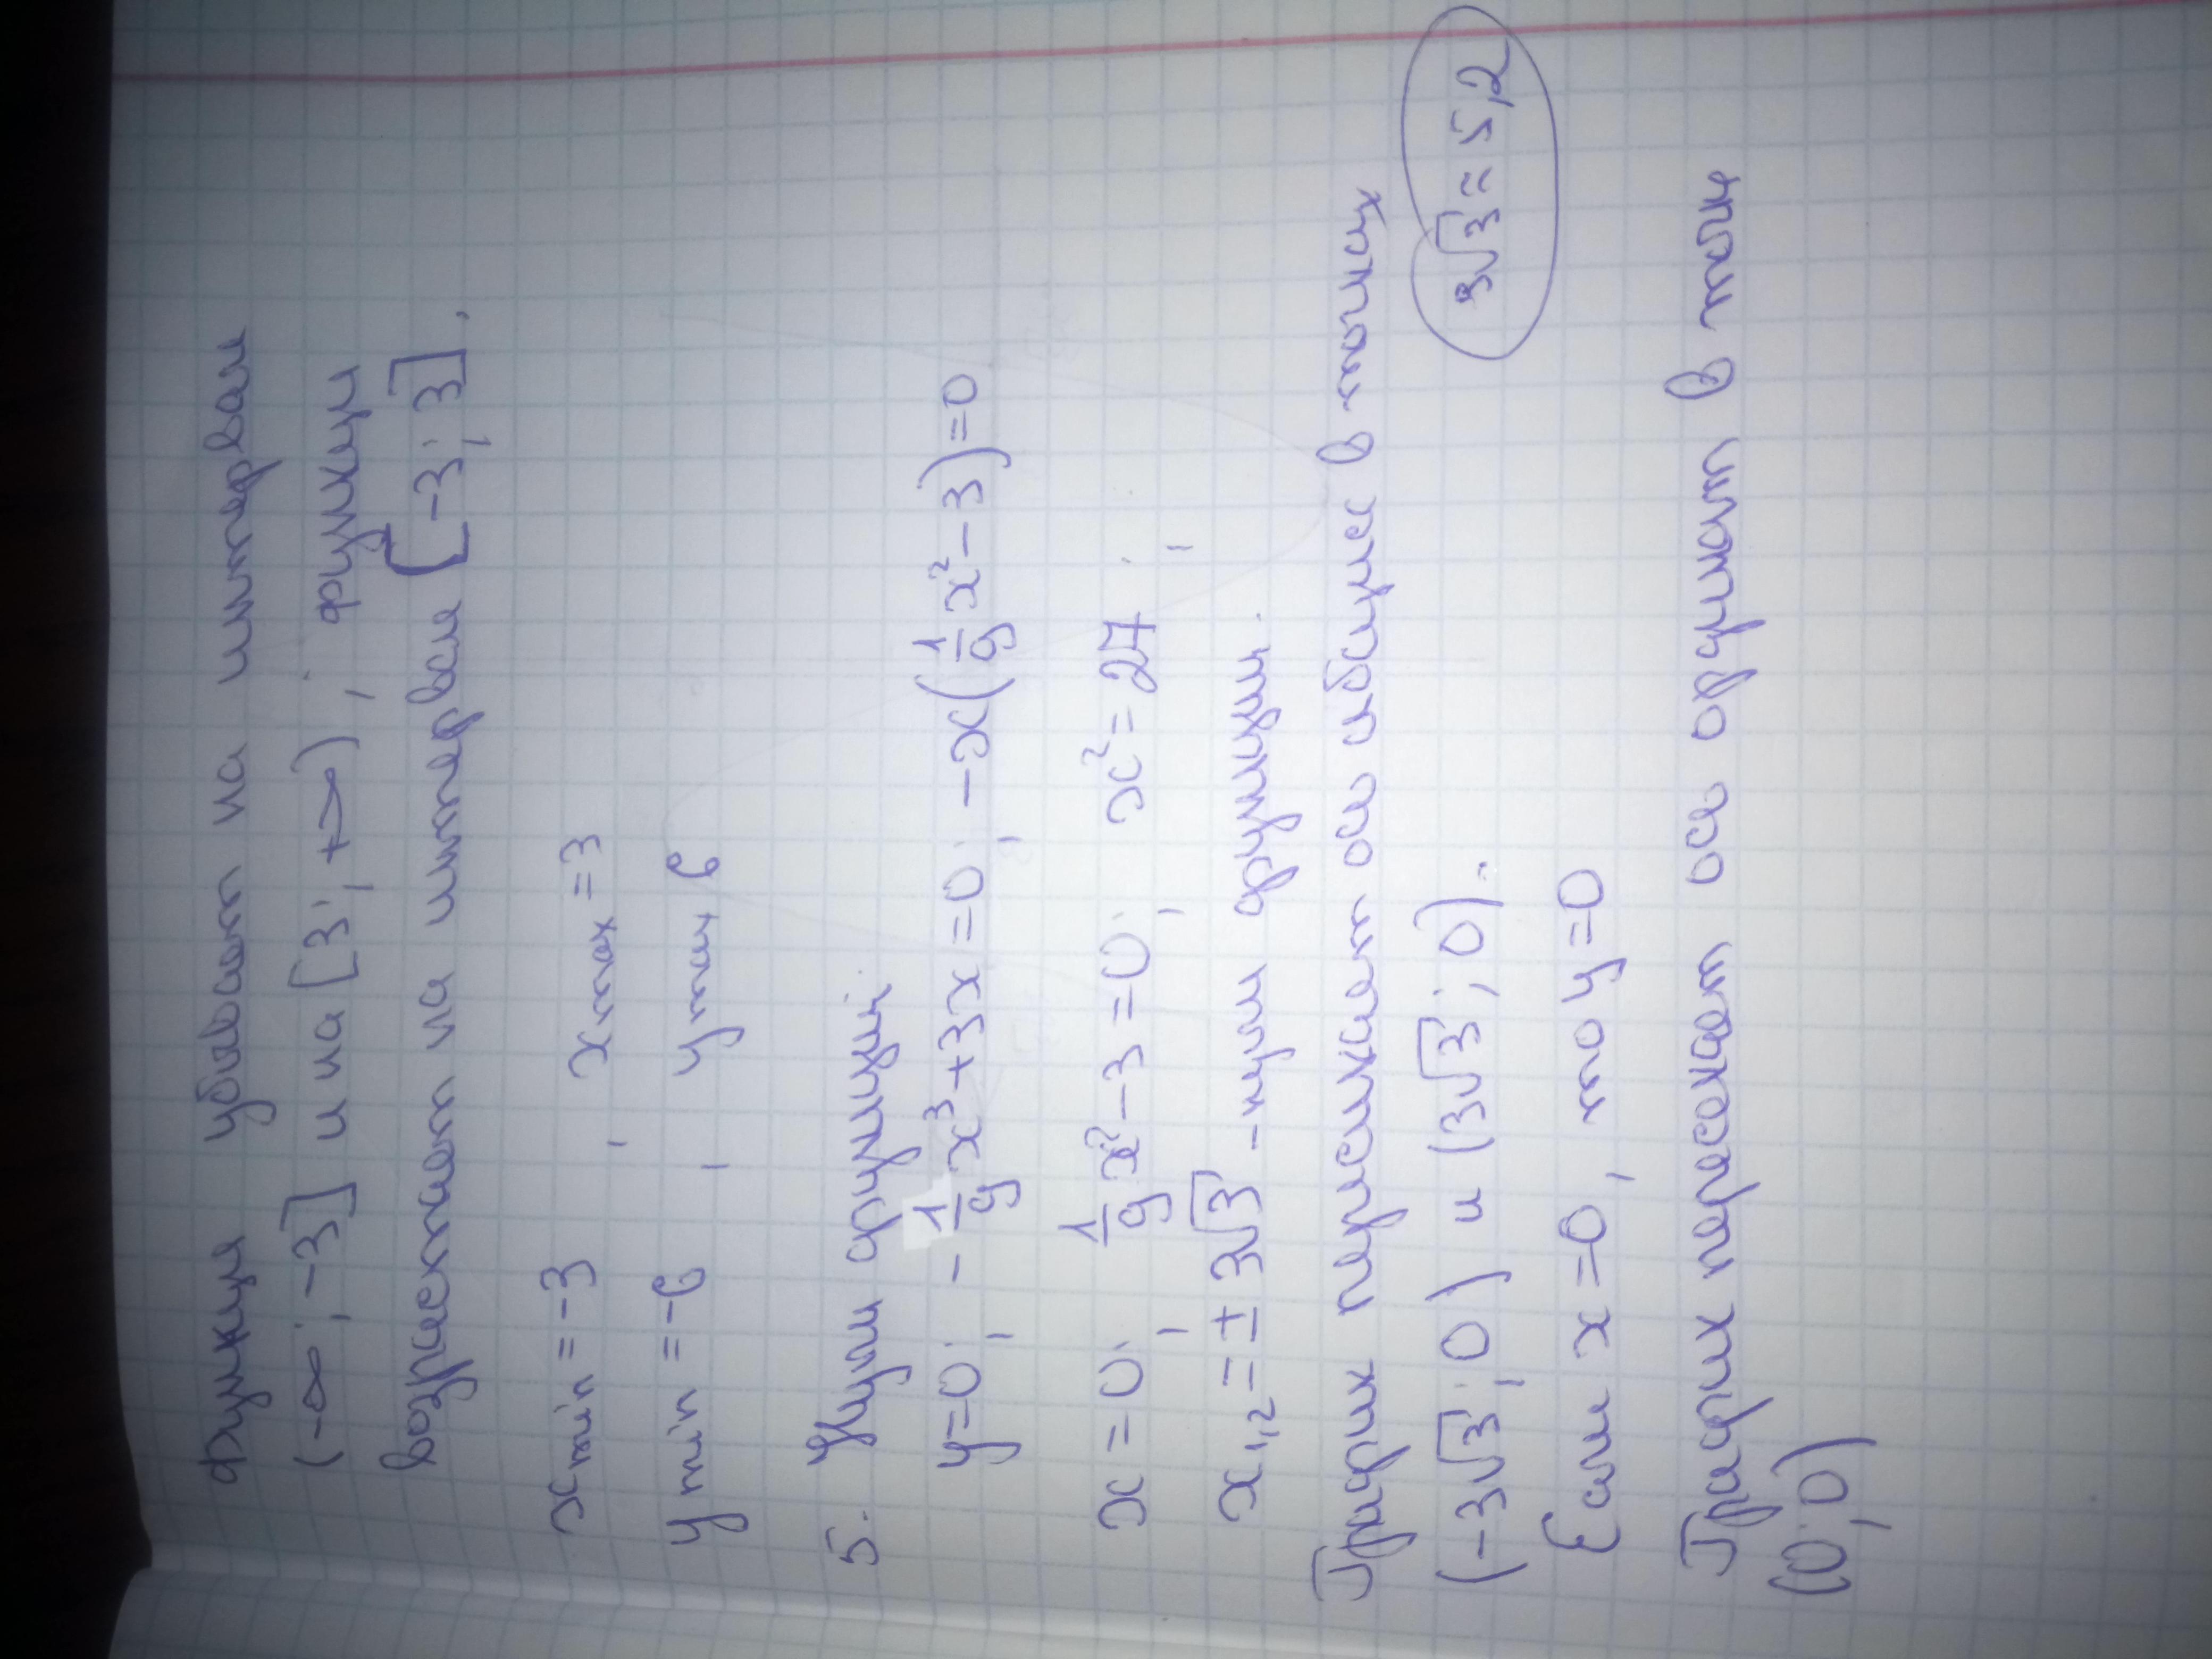 Функция убывает на интервале
(-∞; -3] и на [3; +∞), функции
возрастает на интервале [-3; 3].
xmin = -3, xmax = 3
ymin = -6, ymax 6
5. Нули функции:
y=0; -1/9x³+3x=0; -x(1/9x²-3)=0
x=0; 1/9x²-3=0; x²=27;
x1,2 = ± 3√3 - нули функции.
График пересекает оси абсцисс в точках
(-3√3; 0) и (3√3; 0).
3√3 ≈ 5,2
Если x=0, то y=0
График пересекает ось ординат в точке
(0; 0)